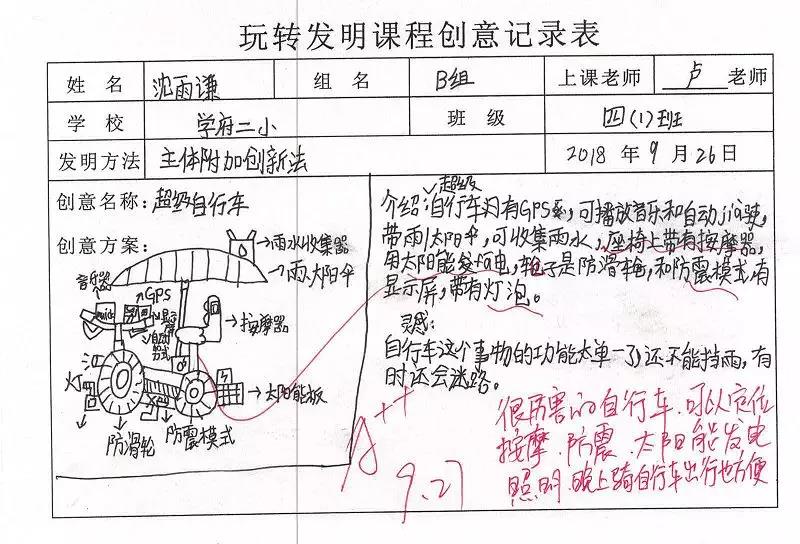 玩转发明课程创意记录表
姓 名 沈雨谦 组 名 B组 上课老师 卢 老师
学 校 学府二小 班 级 四(1)班
发明方法 主体附加创新法 2018 年 9 月 26 日
创意名称: 超级自行车
创意方案:
雨水收集器
雨太阳伞
音乐器
GPS
显示屏
自动
按摩器
灯
太阳能板
防滑轮
防震模式
介绍:超级自行车内有GPS系,可播放音乐和自动jià驶,
带雨太阳伞,可收集雨水,座椅上带有按摩器,
用太阳能发电,轮子是防滑轮,和防震模式,有
显示屏,带有灯泡。
灵感:
自行车这个事物的功能太单一了,还不能挡雨,有
时还会迷路。
A++
9.27
很厉害的自行车.可以定位
按摩.防震.太阳能发电
照明.晚上骑自行车出行也方便